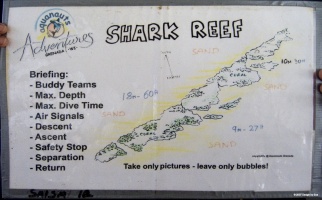 aquanauts
Adventures
GRENADA
SHARK REEF
SAND
SAND
SAND
SAND
CORAL
10m
18m - 60ft
9m - 27ft
Briefing:
- Buddy Teams
- Max. Depth
- Max. Dive Time
- Air Signals
- Descent
- Ascent
- Safety Stop
- Separation
- Return
Take only pictures - leave only bubbles!